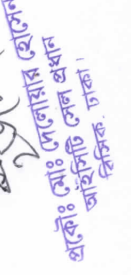 প্রকৌঃ মোঃ দেলোয়ার হোসেন
আইসিটি সেল প্রধান
বিসিক, ঢাকা।